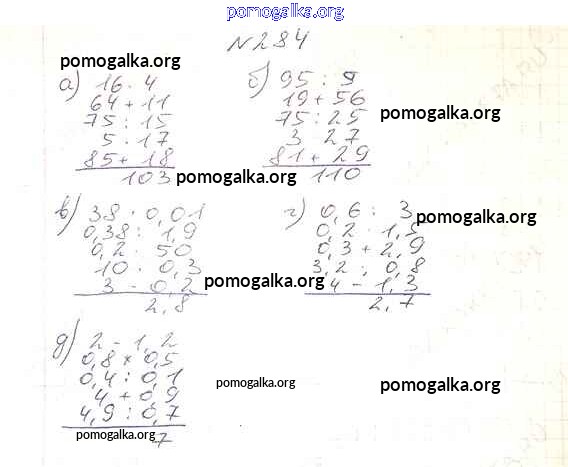 pomogalka.org
№284
pomogalka.org
а) 16 · 4
64 + 11
75 : 15
5 · 17
85 + 18
103
pomogalka.org
б) 95 : 9
19 + 56
75 : 25
3 · 27
81 + 29
110
pomogalka.org
в) 38 · 0,01
0,38 : 1,9
0,2 · 50
10 · 0,3
3 - 0,2
2,8
pomogalka.org
г) 0,6 : 3
0,2 · 1,5
0,3 + 2,9
3,2 : 0,8
4 - 1,3
2,7
pomogalka.org
pomogalka.org
д) 2 - 1,2
0,8 × 0,5
0,4 : 0,1
4 + 0,9
4,9 : 0,7
7
pomogalka.org
pomogalka.org
pomogalka.org